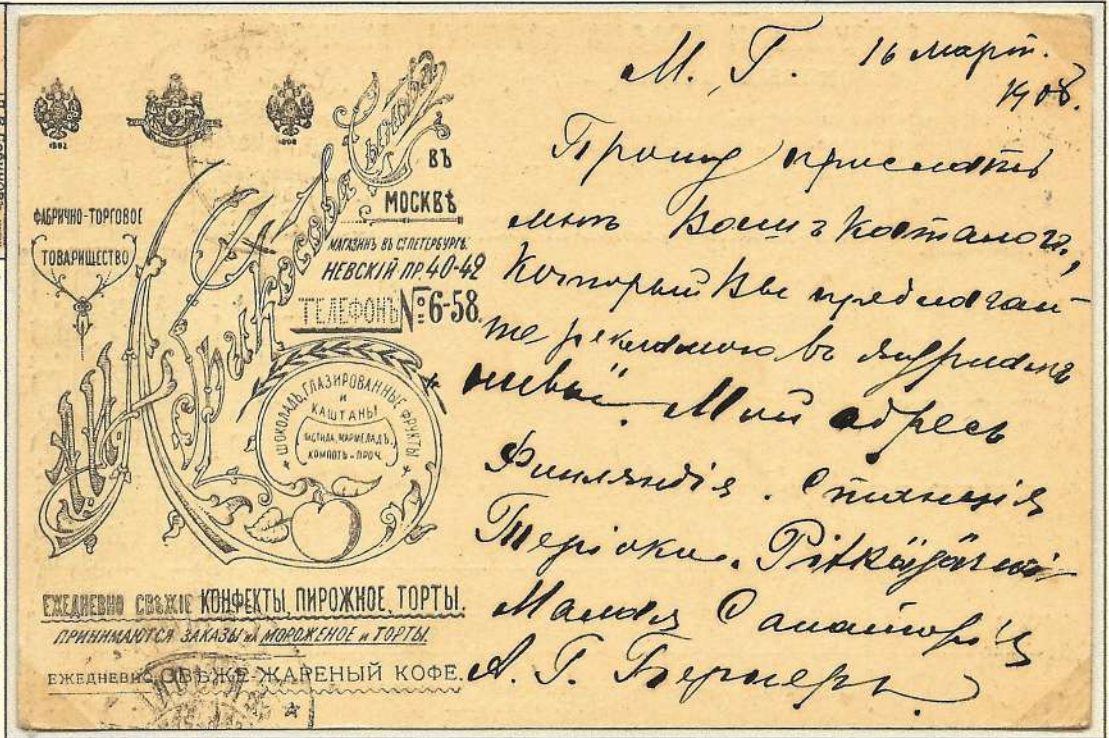 1882
1896
ФАБРИЧНО-ТОРГОВОЕ
ТОВАРИЩЕСТВО
А. И. Абрикосова Сыновей
ВЪ
МОСКВѢ
МАГАЗИНЪ ВЪ С.ПЕТЕРБУРГѢ.
НЕВСКІЙ ПР. 40-42
ТЕЛЕФОНЪ № 6-58.
ШОКОЛАДЪ, ГЛАЗИРОВАННЫЕ ФРУКТЫ
И
КАШТАНЫ
ПАСТИЛА, МАРМЕЛАДЪ,
КОМПОТЪ и ПРОЧ.
ЕЖЕДНЕВНО СВѢЖІЕ КОНФЕКТЫ, ПИРОЖНОЕ, ТОРТЫ.
ПРИНИМАЮТСЯ ЗАКАЗЫ на МОРОЖЕНОЕ и ТОРТЫ.
ЕЖЕДНЕВНО СВѢЖЕ-ЖАРЕНЫЙ КОФЕ.
М. Г. 16 март.
1908.
Прошу прислать
мнѣ Вашъ каталогъ,
который Вы предлагае-
те рекламою въ
Мой адресъ
Финляндія. Станція
Теріоки. Pitkäjärvi
Малая Санаторія
А. Г. Бергеръ